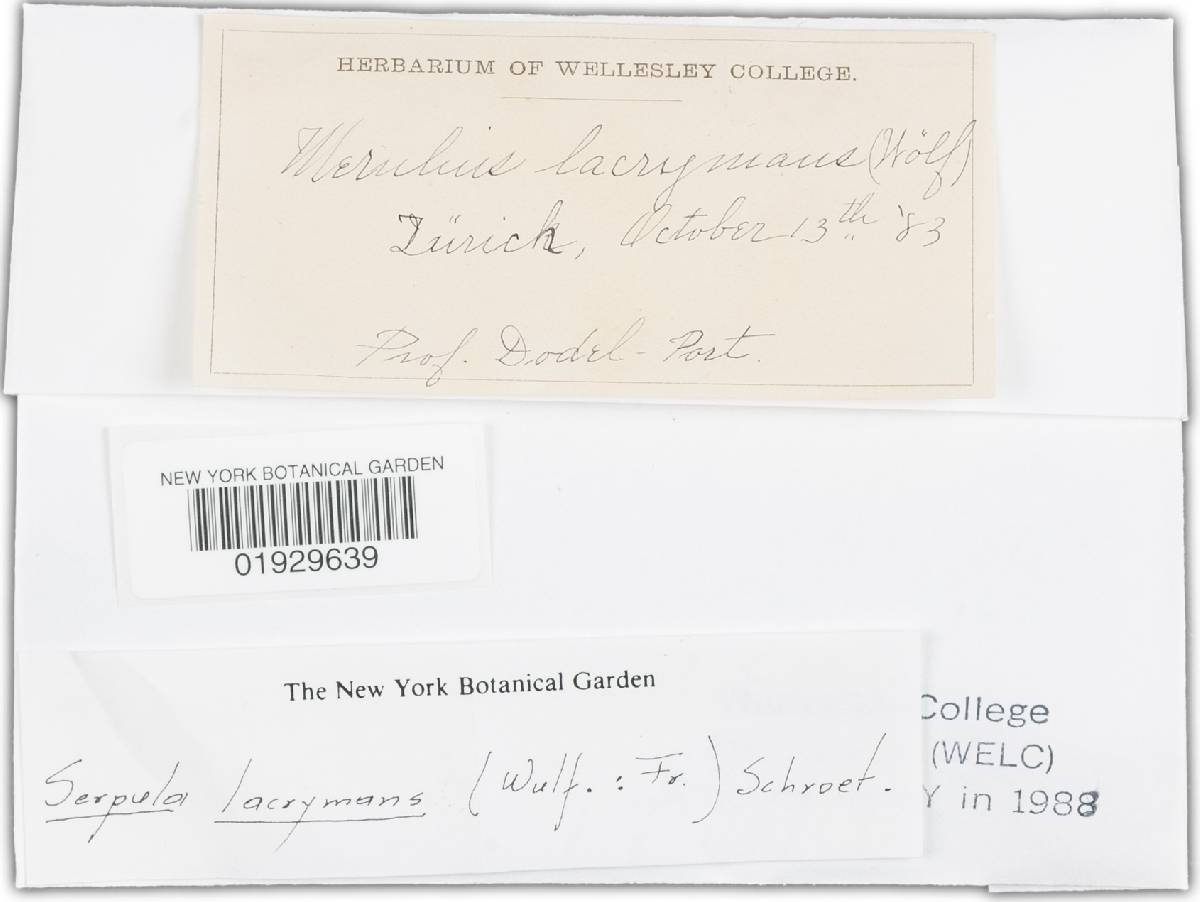 HERBARIUM OF WELLESLEY COLLEGE.
Merulius lacrymans (Wölf)
Zürich, October 13th '83
Prof. Dodel-Port.
NEW YORK BOTANICAL GARDEN
01929639
The New York Botanical Garden
Serpula lacrymans (Wulf. : Fr.) Schroet.
College
(WELC)
Y in 1988